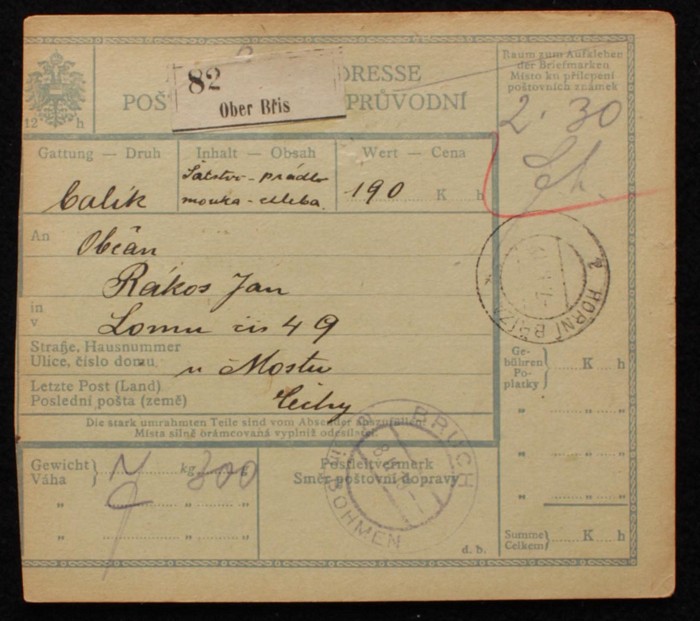 82
Ober Břis
DRESSE
POŠ PRŮVODNÍ
12 h
Raum zum Aufkleben
der Briefmarken
Místo ku přilepení
poštovních známek
2·30
Gattung — Druh
Inhalt — Obsah
Wert — Cena
balík
Šatstvo - prádlo
mouka - chleba.
190 K h
An
Občan
Rákos Jan
in
v
Lomu čís 49
Straße, Hausnummer
Ulice, číslo domu
u Mostu
Letzte Post (Land)
Poslední pošta (země)
Čechy
Die stark umrahmten Teile sind vom Absender auszufüllen.
Místa silně orámcovaná vyplniž odesílatel.
HORNÍ BŘÍZA
Ge-
bühren
Po-
platky
K h
" "
" "
" "
" "
Gewicht
Váha
kg 300
" "
" "
Postleitvermerk
Směr poštovní dopravy
BRUCH
BÖHMEN
d. b.
Summe
Celkem
K h